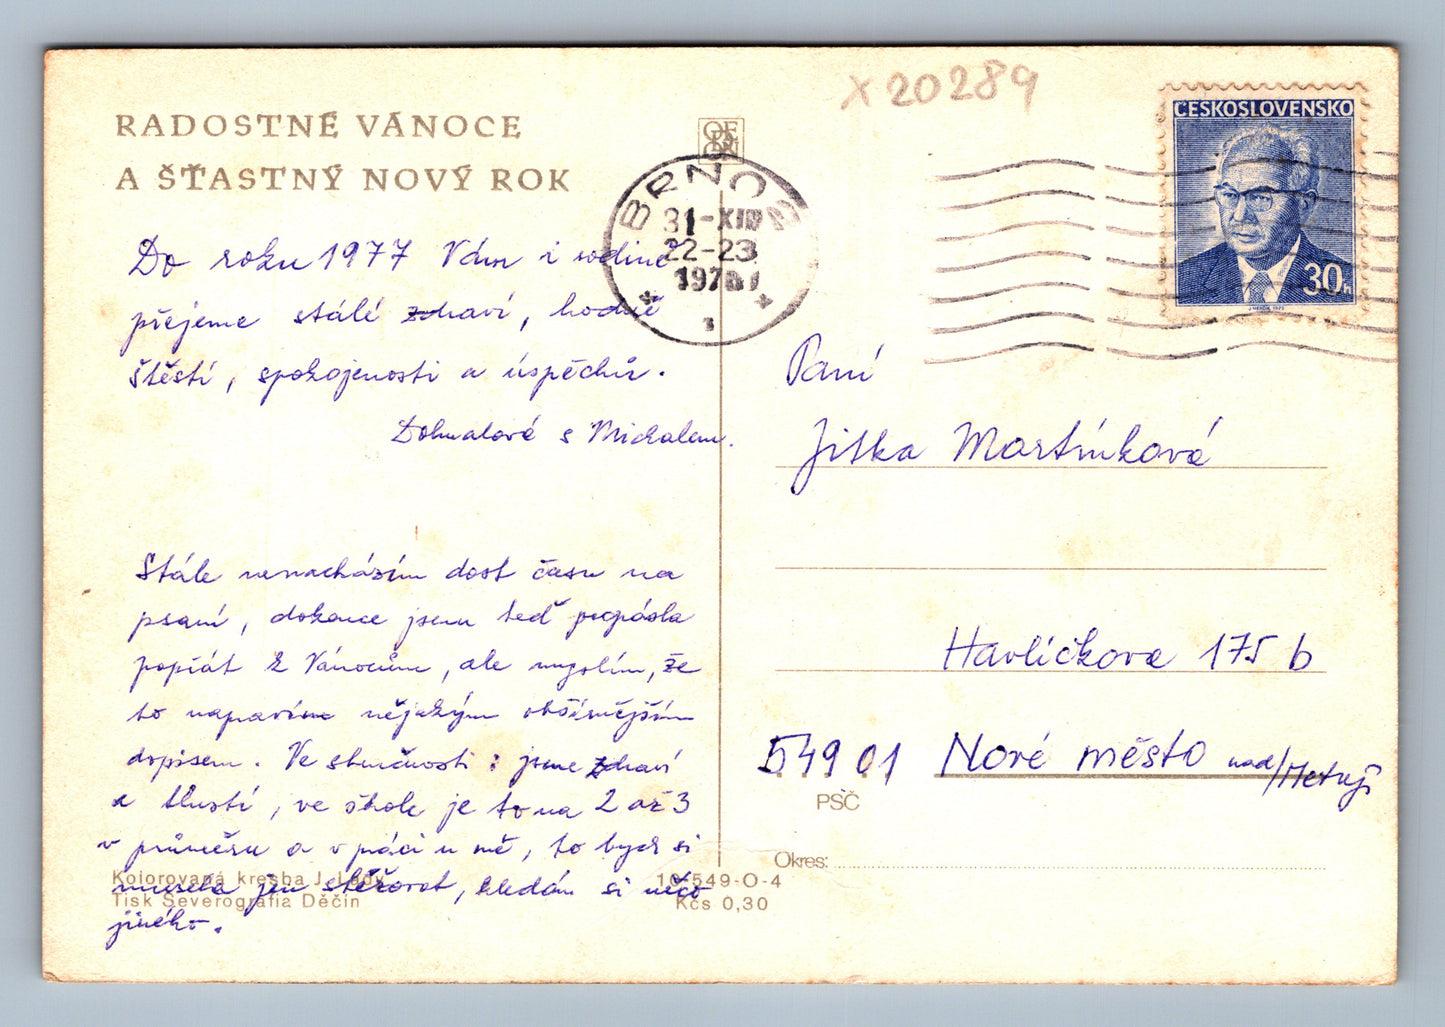 RADOSTNÉ VÁNOCE
A ŠŤASTNÝ NOVÝ ROK
X 20289
ČESKOSLOVENSKO
30h
BRNO
31-XII
22-23
1976
Do roku 1977 Vám i rodině
přejeme stálé zdraví, hodně
štěstí, spokojenosti a úspěchů.
Dohnalová s Michalem.
Stále nenacházím dost času na
psaní, dokonce jsem teď propásla
popřát k Vánocům, ale myslím, že
to napravím nějakým obšírnějším
dopisem. Ve stručnosti: jsme zdraví
a tlustí, ve škole je to na 2 až 3
v průměru a v práci u mě, to bych si
musela jen stěžovat, hledám si něco
jiného.
Kolorovaná kresba J. Lady
Tisk Severografia Děčín
10-549-O-4
Kčs 0,30
Paní
Jitka Martínková
Havlíčkova 175 b
54901 Nové město nad/Metují
PSČ
Okres: